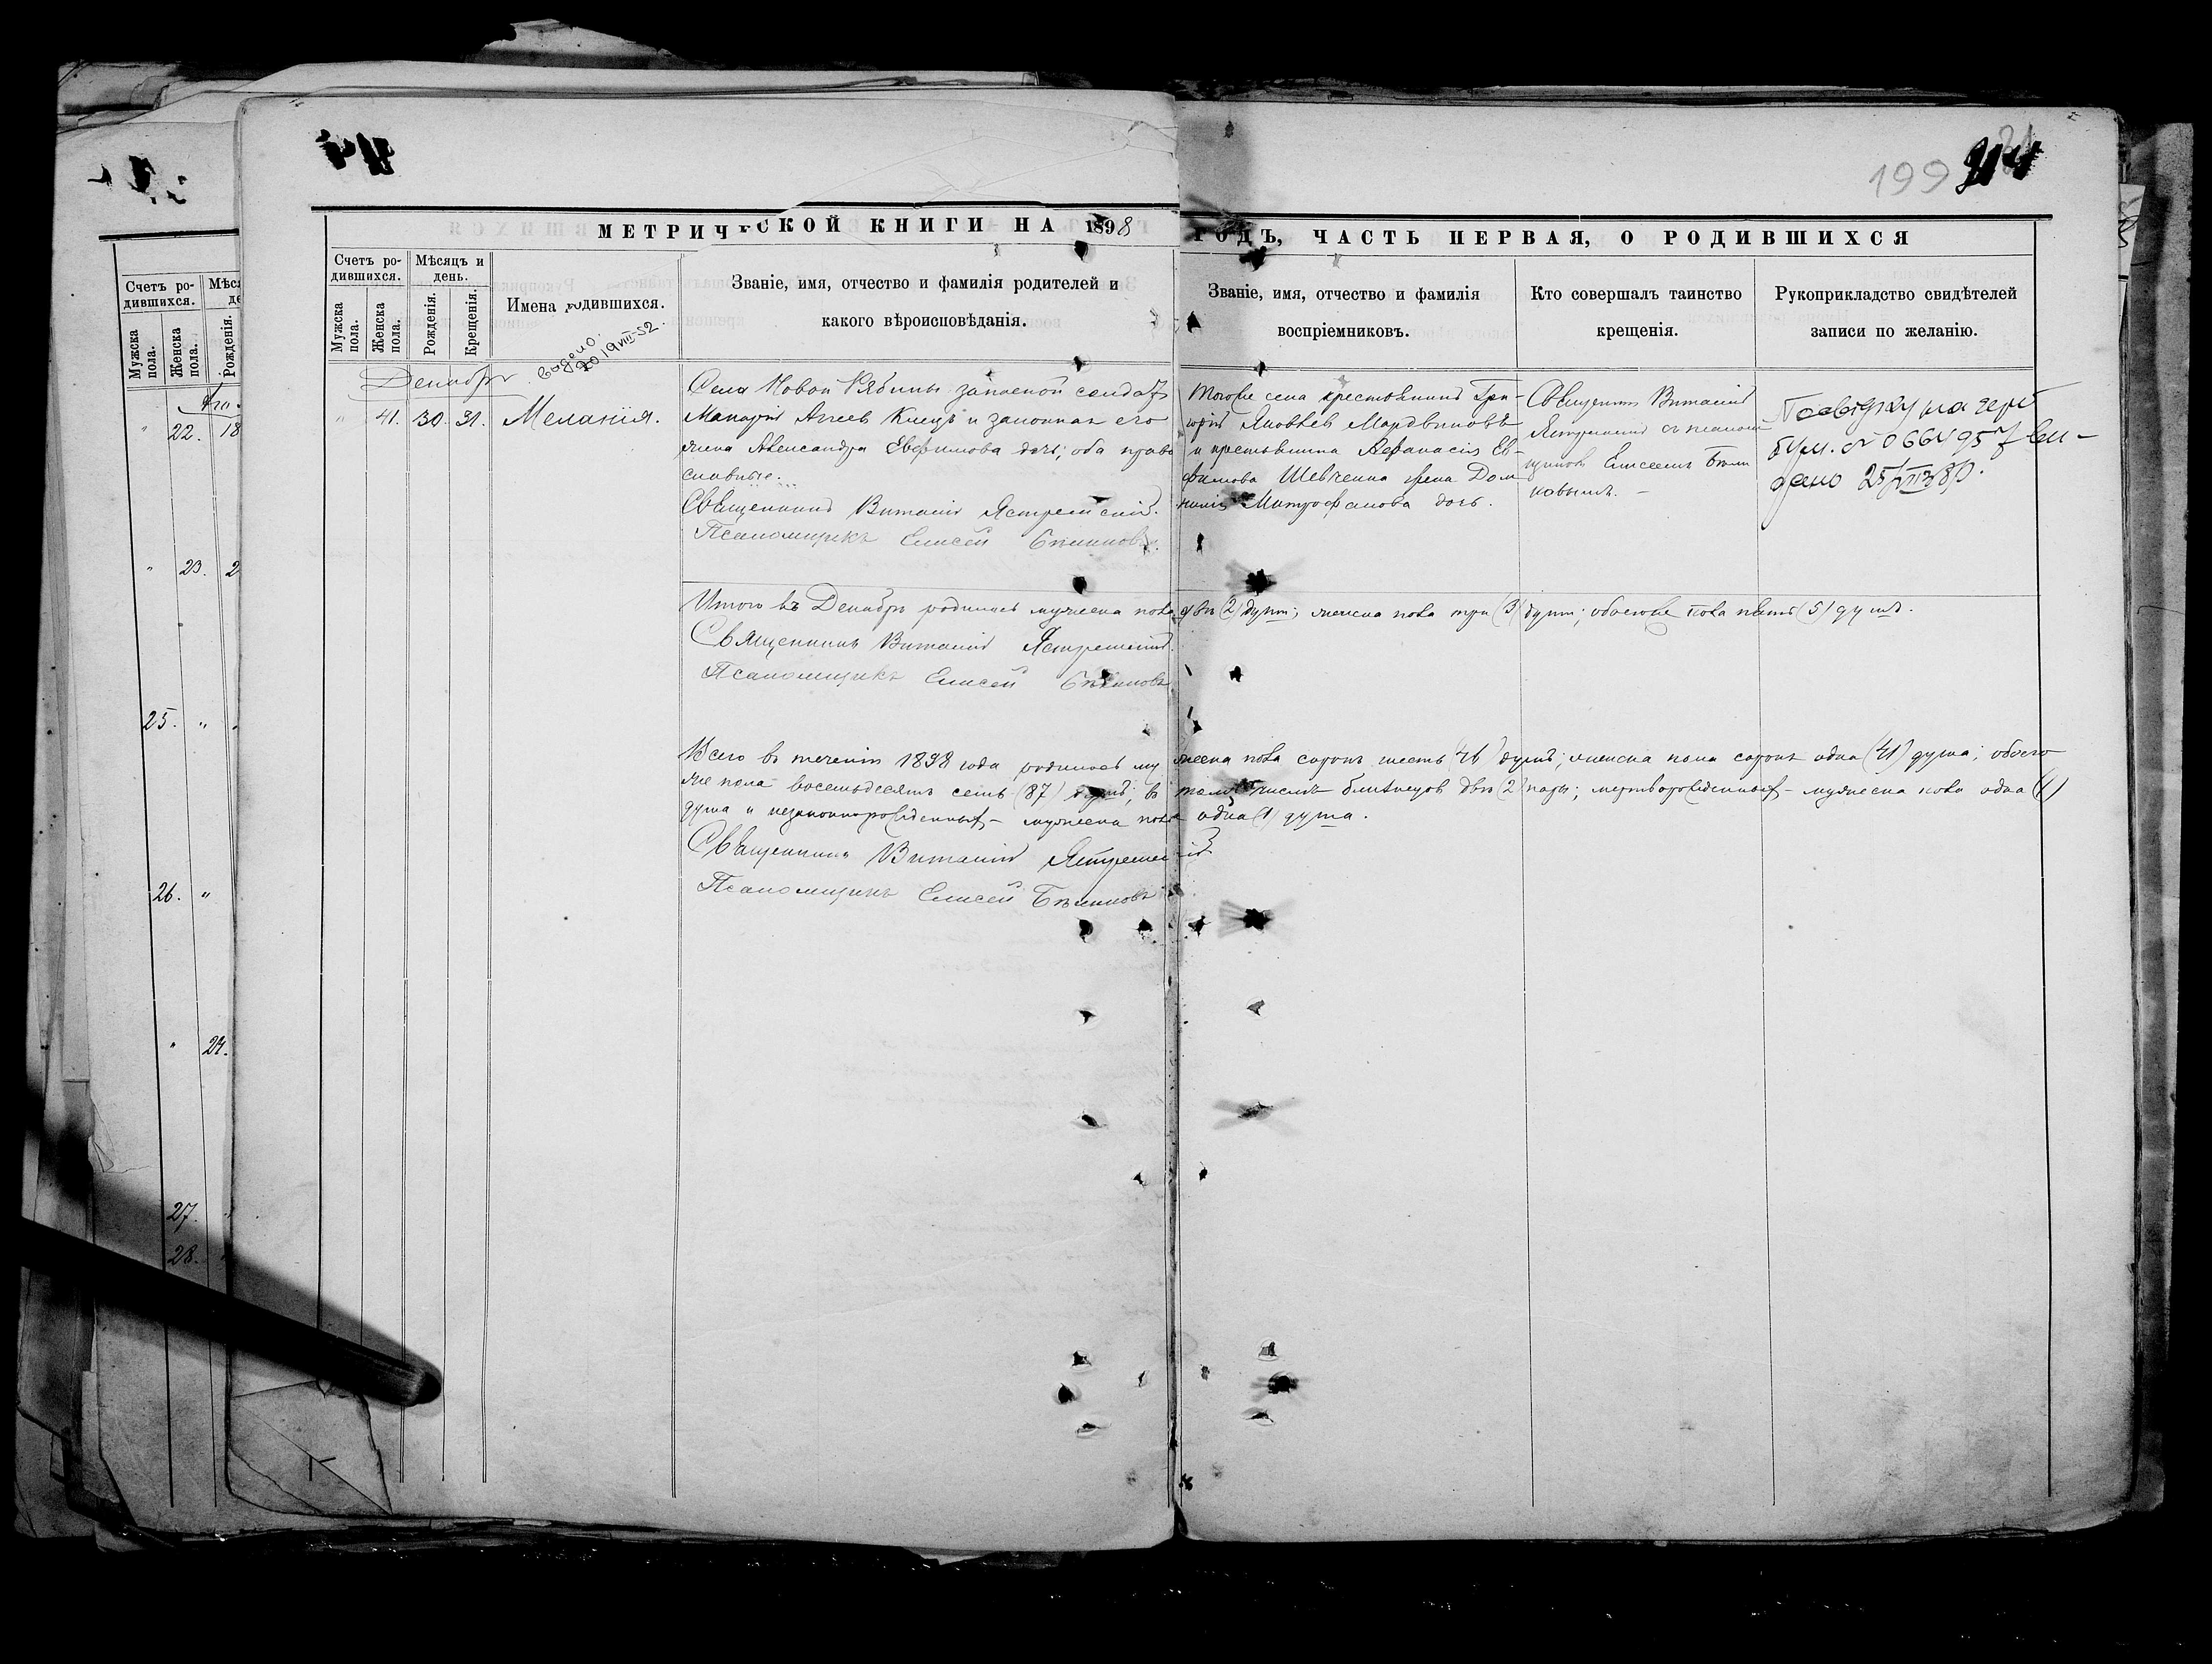 199
МЕТРИЧЕСКОЙ КНИГИ НА 1898 ГОДЪ, ЧАСТЬ ПЕРВАЯ, О РОДИВШИХСЯ
Счетъ ро-
дившихся.
Мужска
пола.
Женска
пола.
Мѣсяцъ и
день.
Рожденія.
Крещенія.
Имена родившихся.
Званіе, имя, отчество и фамилія родителей и
какого вѣроисповѣданія.
Званіе, имя, отчество и фамилія
воспріемниковъ.
Кто совершалъ таинство
крещенія.
Рукоприкладство свидѣтелей
записи по желанію.
Декабрь
" 41. 30. 31. Меланія.
Села Новой Рябины запасной солдатъ
Макарій Клецъ и законная его
жена Александра Евфимова дочь; оба право
славные.
Священникъ Виталій Ястремскій.
Псаломщикъ Елисей Бѣликовъ.
Тогоже села крестьянинъ Гри-
горій Яковлевъ Мордвиновъ
и крестьянина Аѳанасія Ев-
фимова Шевченка жена Дом
Митрофанова дочь.
Священникъ Виталій
Ястремскій съ псалом
щикомъ Елисеемъ Бѣли
ковымъ. -
Посвідку на герб
бум. № 0664957 ви-
дано
Итого въ Декабрѣ родилось мужеска пола двѣ (2) души; женска пола три (3) души; обоегоже пола пять (5) душъ.
Священникъ Виталій Ястремскій.
Псаломщикъ Елисей Бѣликовъ
Всего въ теченіи 1898 года родилось мужеска пола сорокъ шесть (46) душъ; женска пола сорокъ одна (41) душа; обоего
же пола восемьдесятъ семь (87) душъ; въ томъ числѣ близнецовъ двѣ (2) пары; мертворожденныхъ - мужеска пола одна (1)
душа и незаконнорожденныхъ - мужеска пола одна (1) душа.
Священникъ Виталій Ястремскій
Псаломщикъ Елисей Бѣликовъ
Счетъ ро-
дившихся.
Мужска
пола.
Женска
пола.
Рожденія.
" 22. 18
" 23. 2
25. "
26. "
" 24.
27.
28.